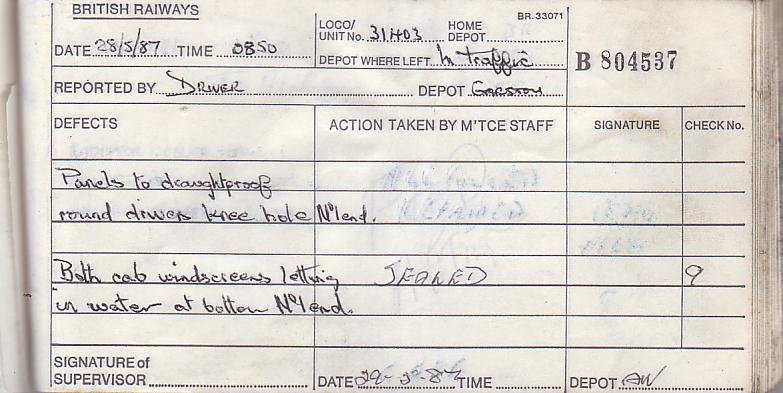 BRITISH RAIWAYS
BR. 33071
LOCO/ UNIT No. 31403 HOME DEPOT
DATE 28/5/87 TIME 0850
DEPOT WHERE LEFT In traffic
B 804537
REPORTED BY DRIVER DEPOT GARSTON
DEFECTS ACTION TAKEN BY M'TCE STAFF SIGNATURE CHECK No.
Panels to draughtproof
round drivers knee hole Nº1end.
Both cab windscreens letting SEALED 9
in water at bottom Nº1end.
SIGNATURE of
SUPERVISOR DATE TIME DEPOT